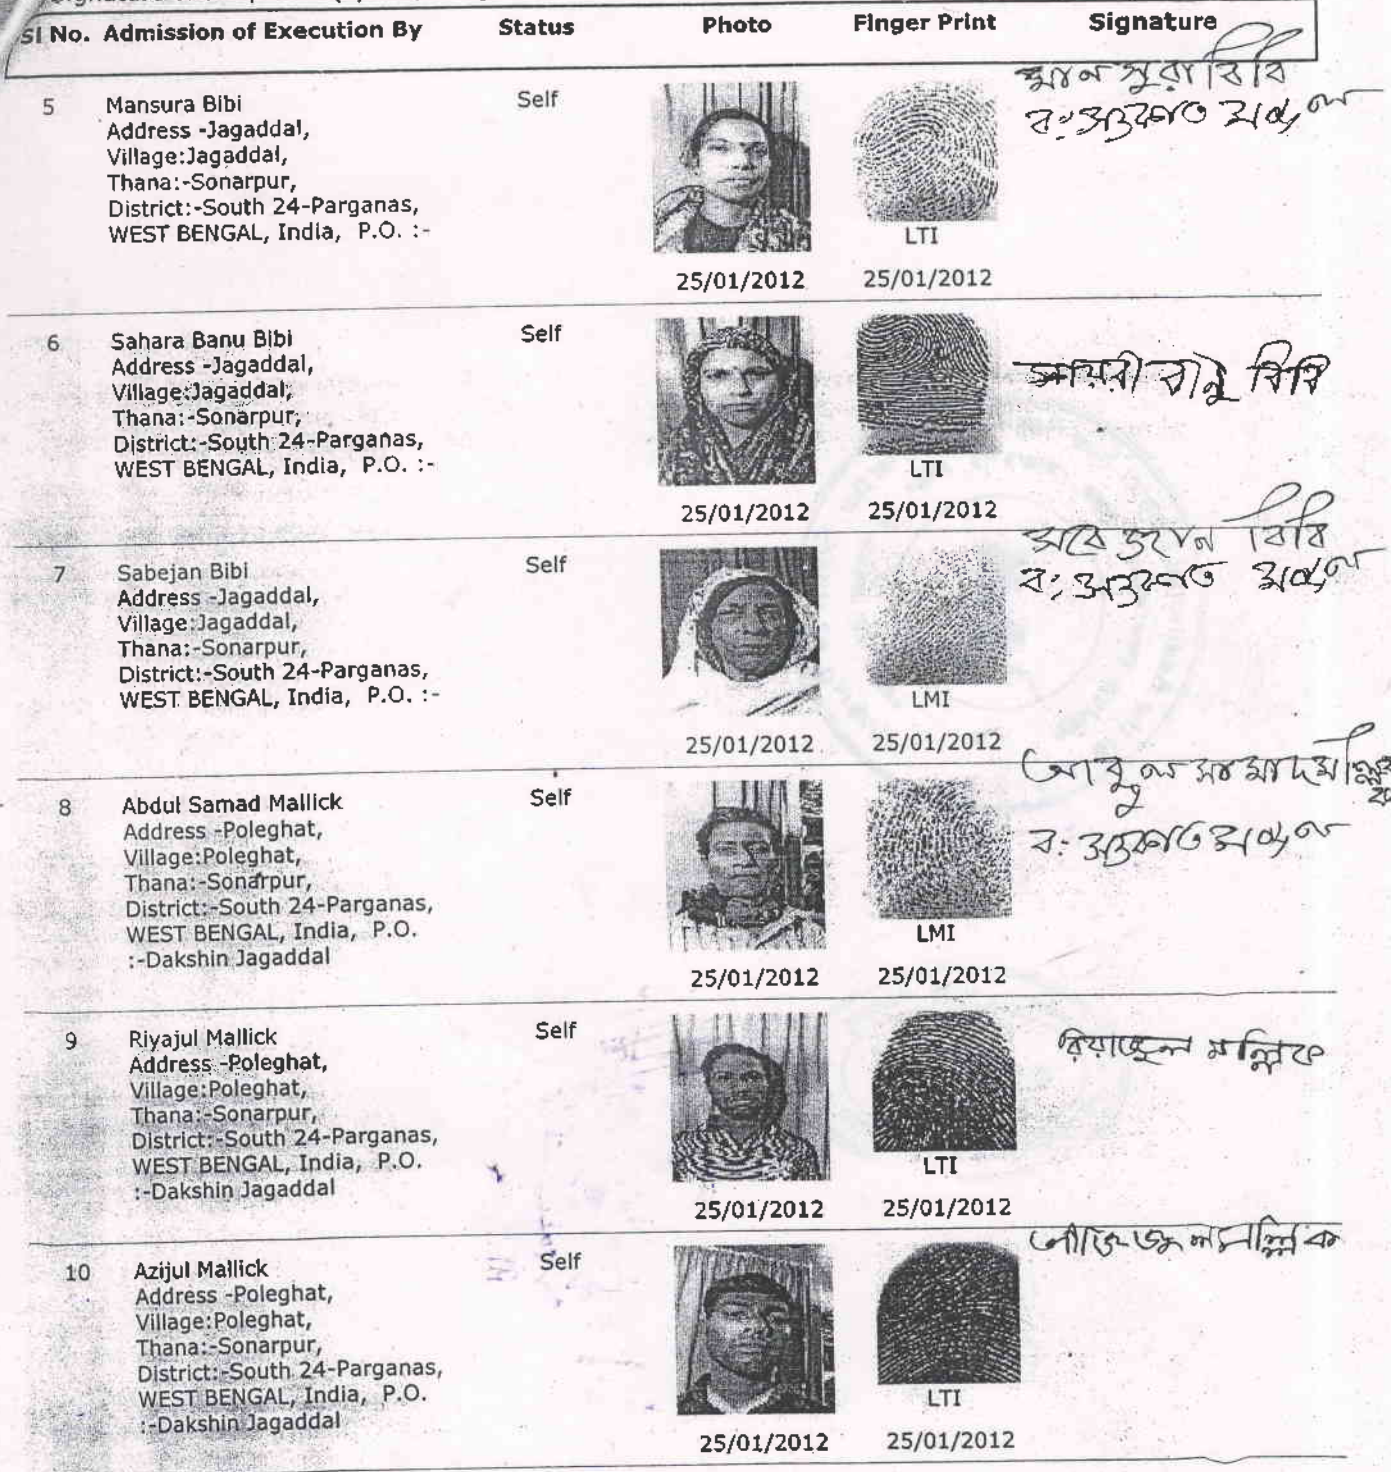 SI No. Admission of Execution By Status Photo Finger Print Signature
5 Mansura Bibi Self মানসুরা বিবি
Address -Jagaddal,
Village:Jagaddal,
Thana:-Sonarpur,
District:-South 24-Parganas,
WEST BENGAL, India, P.O. :-
LTI
25/01/2012 25/01/2012
6 Sahara Banu Bibi Self বানু বিবি
Address -Jagaddal,
Village:Jagaddal,
Thana:-Sonarpur,
District:-South 24-Parganas,
WEST BENGAL, India, P.O. :-
LTI
25/01/2012 25/01/2012
7 Sabejan Bibi Self সবেজান বিবি
Address -Jagaddal,
Village:Jagaddal,
Thana:-Sonarpur,
District:-South 24-Parganas,
WEST BENGAL, India, P.O. :-
LMI
25/01/2012 25/01/2012
8 Abdul Samad Mallick Self
Address -Poleghat,
Village:Poleghat,
Thana:-Sonarpur,
District:-South 24-Parganas,
WEST BENGAL, India, P.O.
:-Dakshin Jagaddal
LMI
25/01/2012 25/01/2012
9 Riyajul Mallick Self রিয়াজুল মল্লিক
Address -Poleghat,
Village:Poleghat,
Thana:-Sonarpur,
District:-South 24-Parganas,
WEST BENGAL, India, P.O.
:-Dakshin Jagaddal
LTI
25/01/2012 25/01/2012
10 Azijul Mallick Self
Address -Poleghat,
Village:Poleghat,
Thana:-Sonarpur,
District:-South 24-Parganas,
WEST BENGAL, India, P.O.
:-Dakshin Jagaddal
LTI
25/01/2012 25/01/2012